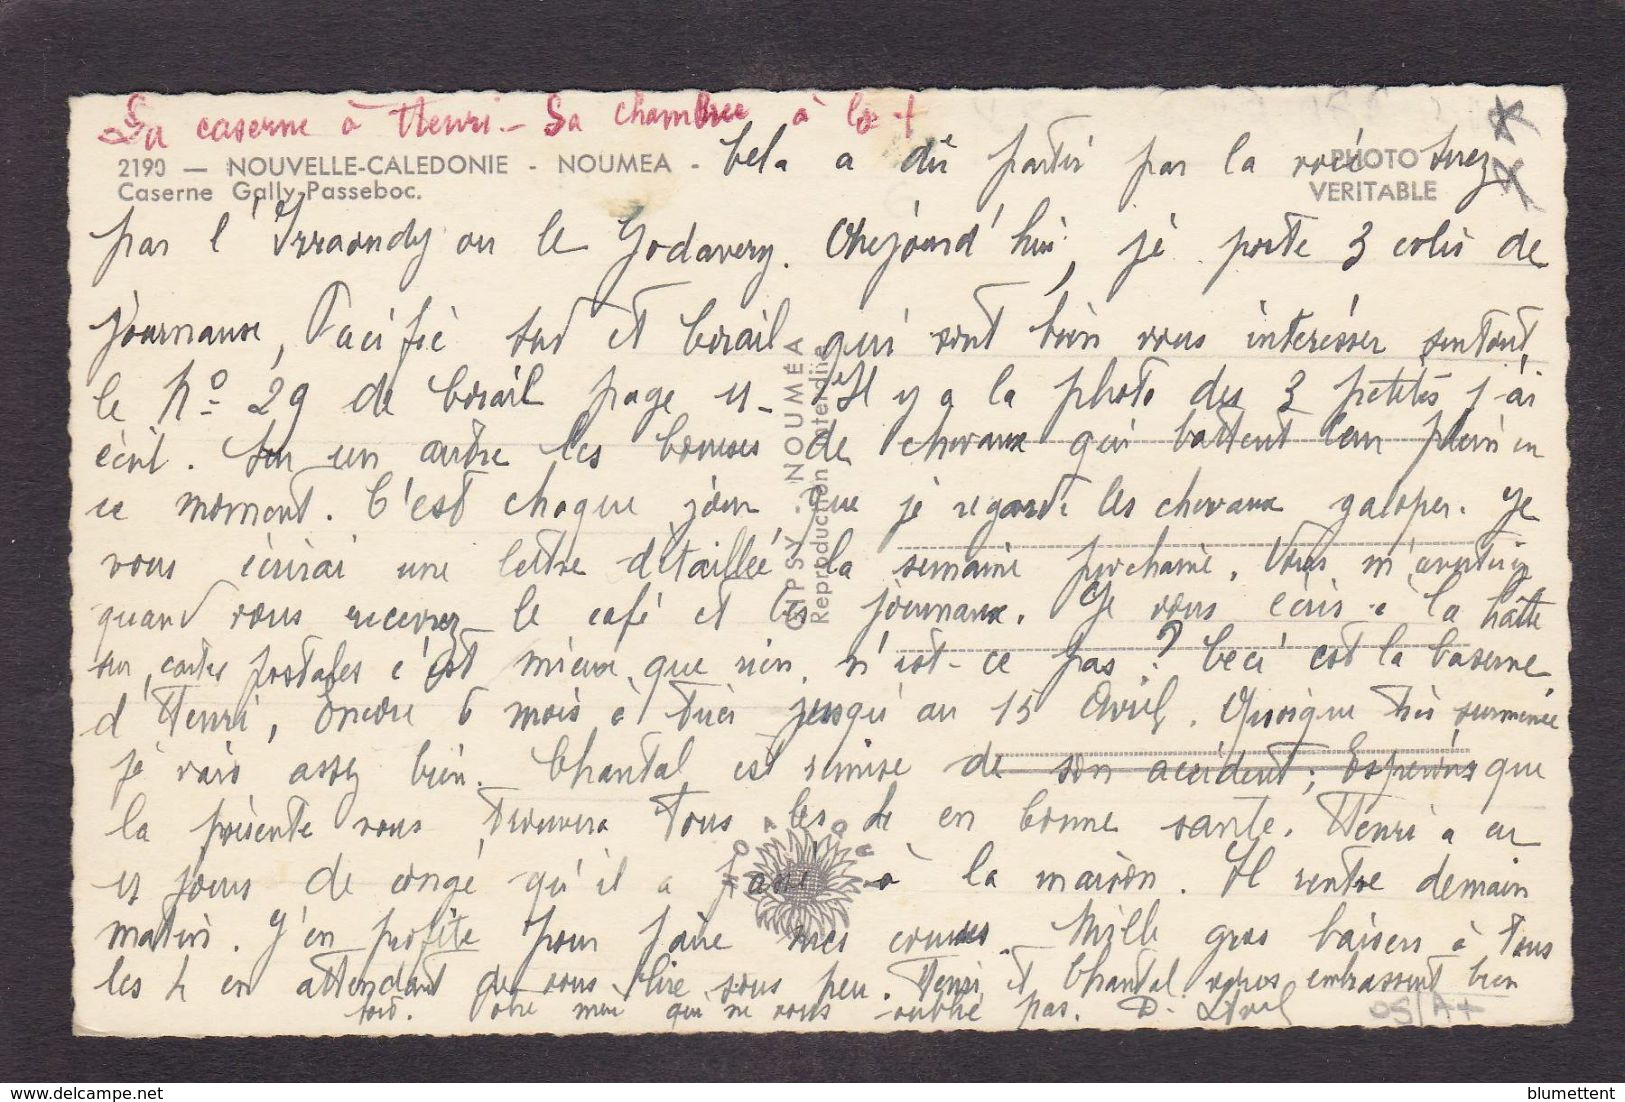 La caserne à Henri - Sa chambre à la +
2190 — NOUVELLE-CALEDONIE - NOUMEA - Cela a dû partir par la voie Suez
Caserne Gally-Passeboc.
PHOTO
VERITABLE
par l' ou le Godavery. Aujourd'hui, je porte 3 colis de
journaux, Pacific Sud et Corail qui vont bien vous intéresser surtout
le No 29 de Corail page 11 - Il y a la photo des 3 petites j'ai
écrit. Sur un autre les courses de chevaux qui battent leur plein en
ce moment. C'est chaque jour que je regarde les chevaux galoper. Je
vous écrirai une lettre détaillée la semaine prochaine. Vous m'avertirez
quand vous recevrez le café et les journaux. Je vous écris à la hâtte
sur cartes postales c'est mieux que rien n'est-ce pas? Ceci est la Caserne
d'Henri, encore 6 mois à tirer jusqu'au 15 Avril. Quoique très surmenée
je vais assez bien. Chantal est remise de son accident; Espérons que
la présente vous trouvera tous les 4 en bonne santé. Henri a eu
11 jours de congé qu'il a passé à la maison. Il rentre demain
matin. J'en profite pour faire mes courses. Mille gros baisers à tous
les 4 en attendant de vous lire sous peu. Henri et Chantal vous embrassent bien
fort. Votre qui ne vous oublie pas. D.
GYPSY - NOUMÉA
Reproduction Interdite
OS/A+
blumettent